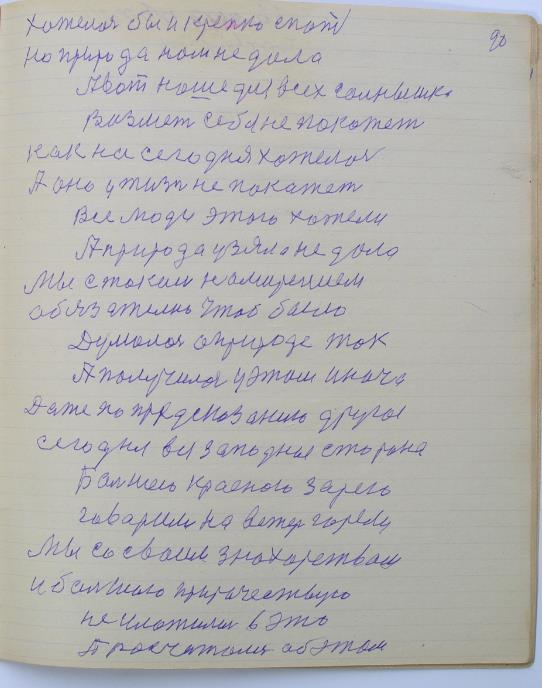 хотелоя бы и крепко спат
90
но природа нам не дала
А вот наше для всех солнышко
Возмет себя не покожет
как на сегодня хотелоя
А оно у тизи не покажет
Все люди этого хотели
А природа узяла не дала
Мы с таким намирением
обязателно чтоб было
Думолоя о природе ток
А получилоя у этом иначе
Даже по предсказанию другое
сегодня вся западная сторона
Болшею красного зарею
говарили на ветер горели
Мы со своим знахорством
и болшого пророчествую
не иложили в это
Просчиталия об этом